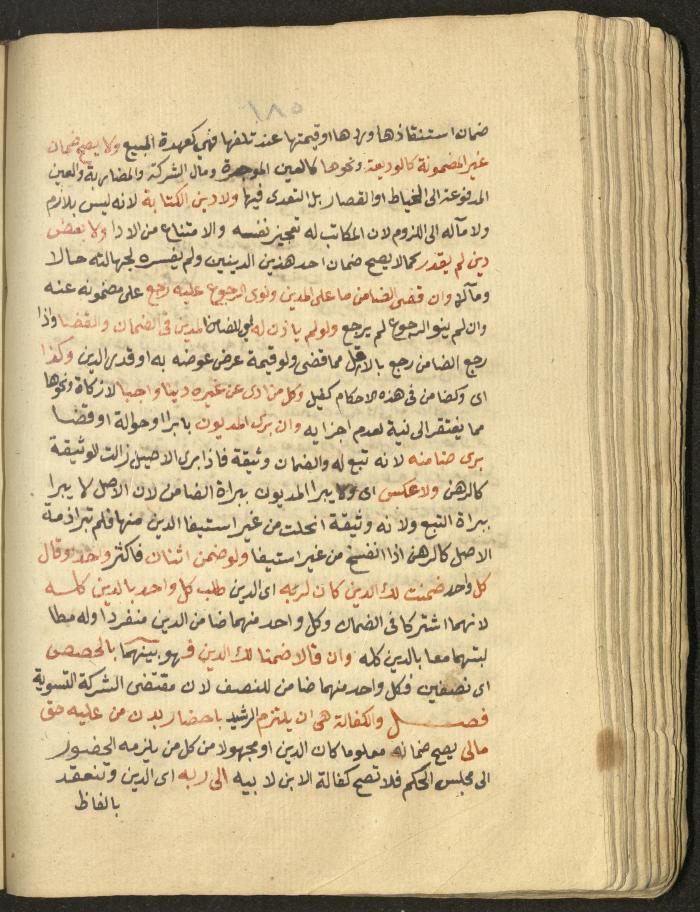 ١٨٥
ضمان استنقاذها وردها او قيمتها عند تلفها فهي كعهدة المبيع ولا يصح ضمان
غير المضمونة كالوديعة ونحوها كالعين الموجرة ومال الشركة والمضاربة والعين
المدفوعة الى الخياط او القصار بل التعدى فيها ولا دين الكتابة لانه ليس بلازم
ولا مآله الى اللزوم لان المكاتب له تعجيز نفسه والامتناع من الادا ولا بعض
دين لم يقدر كما لا يصح ضمان احد هذين الدينين ولم يفسره لجهالته حالا
ومآلا وان قضى الضامن ما على المدين ونوى الرجوع عليه رجع على مضمونه عنه
وان لم ينو الرجوع لم يرجع ولو لم ياذن له اى للضامن المدين فى الضمان والقضا واذا
رجع الضامن رجع بالاقل مما قضى ولو قيمة عرض عوضه به او قدر الدين وكذا
اى وكضامن فى هذه الاحكام كفيل وكل من ادى عن غيره دينا واجبا لا زكاة ونحوها
مما يفتقر الى نية لعدم اجزايه وان برى المديون بابرا او حوالة او قضا
برى ضامنه لانه تبع له والضمان وثيقة فاذا برى الاصيل زالت الوثيقة
كالرهن ولا عكس اى ولا يبرا المديون ببراة الضامن لان الاصل لا يبرا
ببراة التبع ولانه وثيقة انحلت من غير استيفا الدين منها فلم تبرا ذمة
الاصل كالرهن اذا انفسخ من غير استيفا ولو ضمن اثنان فاكثر واحدا وقال
كل واحد ضمنت لك الدين كان لربه اى الدين طلب كل واحد بالدين كله
لانهما اشتركا فى الضمان وكل واحد منهما ضامن الدين منفردا وله مطا
لبتهما معا بالدين كله وان قالا ضمنا لك الدين فهو بينهما بالحصص
اى نصفين فكل واحد منهما ضامن للنصف لان مقتضى الشركة التسوية
فصل والكفالة هى ان يلتزم الرشيد باحضار بدن من عليه حق
مالى يصح ضمانه معلوما كان الدين او مجهولا من كل من يلزمه الحضور
الى مجلس الحكم فلا تصح كفالة الابن لابيه الى ربه اى الدين وتنعقد
بالفاظ